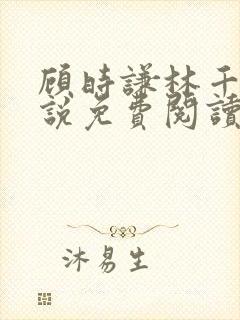 顾時謙林千
説免費閱讀
沐易生